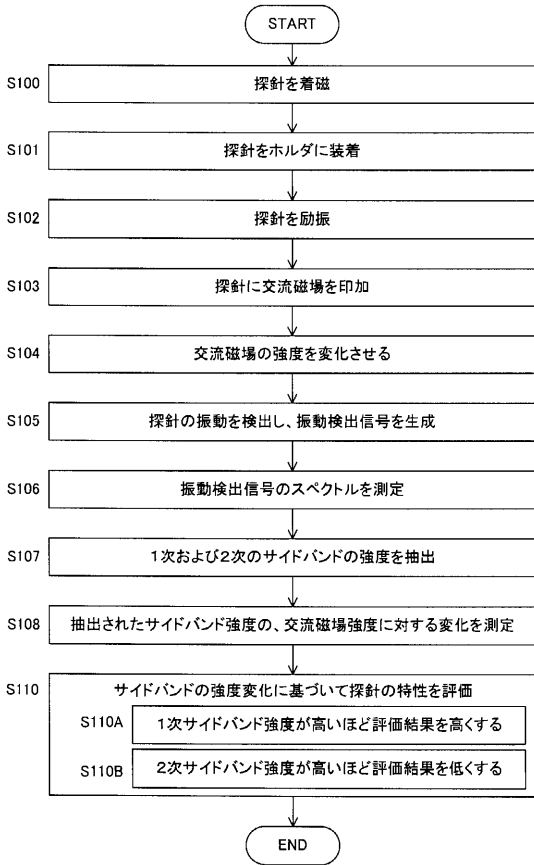 START
S100 探針を着磁
S101 探針をホルダに装着
S102 探針を励振
S103 探針に交流磁場を印加
S104 交流磁場の強度を変化させる
S105 探針の振動を検出し、振動検出信号を生成
S106 振動検出信号のスペクトルを測定
S107 1次および2次のサイドバンドの強度を抽出
S108 抽出されたサイドバンド強度の、交流磁場強度に対する変化を測定
S110 サイドバンドの強度変化に基づいて探針の特性を評価
S110A 1次サイドバンド強度が高いほど評価結果を高くする
S110B 2次サイドバンド強度が高いほど評価結果を低くする
END